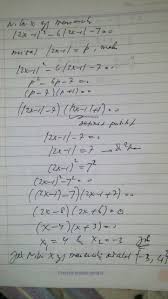 Nilai x yg memenuhi
|2x-1|² - 6|2x-1| - 7 = 0
misal |2x-1| = p, maka
|2x-1|² - 6|2x-1| - 7 = 0
p² - 6p - 7 = 0
(p-7)(p+1) = 0
(|2x-1|-7)(|2x-1|+1) = 0
definit positif
|2x-1| - 7 = 0
|2x-1| = 7
(2x-1)² = 7²
(2x-1)² - 7² = 0
(2x-1-7)(2x-1+7) = 0
(2x-8)(2x+6) = 0
(x-4)(x+3) = 0
x₁ = 4 x₂ = -3
Jadi Nilai x yg memenuhi adalah {-3, 4}